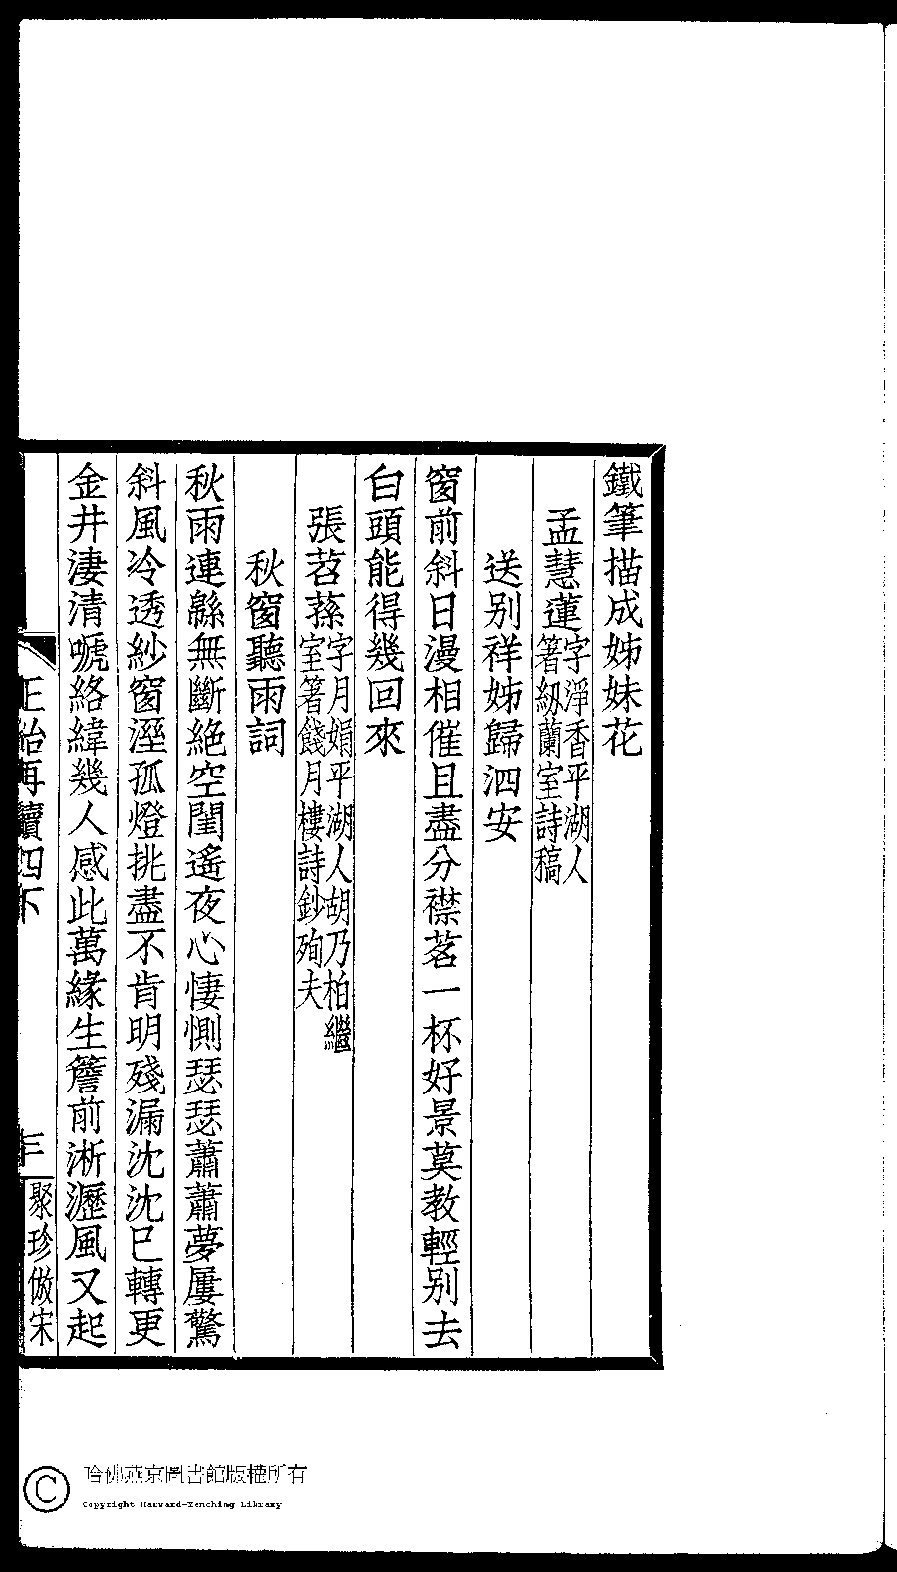 鐵筆描成姊妹花
孟慧蓮字淨香平湖人
箸紉蘭室詩稿
送别祥姊歸泗安
窗前斜日漫相催且盡分襟茗一杯好景莫教輕别去
白頭能得幾回來
張苕蓀字月娟平湖人胡乃柏繼
室箸餞月樓詩鈔殉夫
秋窗聽雨詞
秋雨連緜無斷絶空閨遙夜心悽惻瑟瑟蕭蕭夢屢驚
斜風冷透紗窗溼孤燈挑盡不肯明殘漏沈沈已轉更
金井淒清嗁絡緯幾人感此萬緣生簷前淅瀝風又起
正始再續四下
聚珍倣宋
哈佛燕京圖書館版權所有
Copyright Harvard-Yenching Library